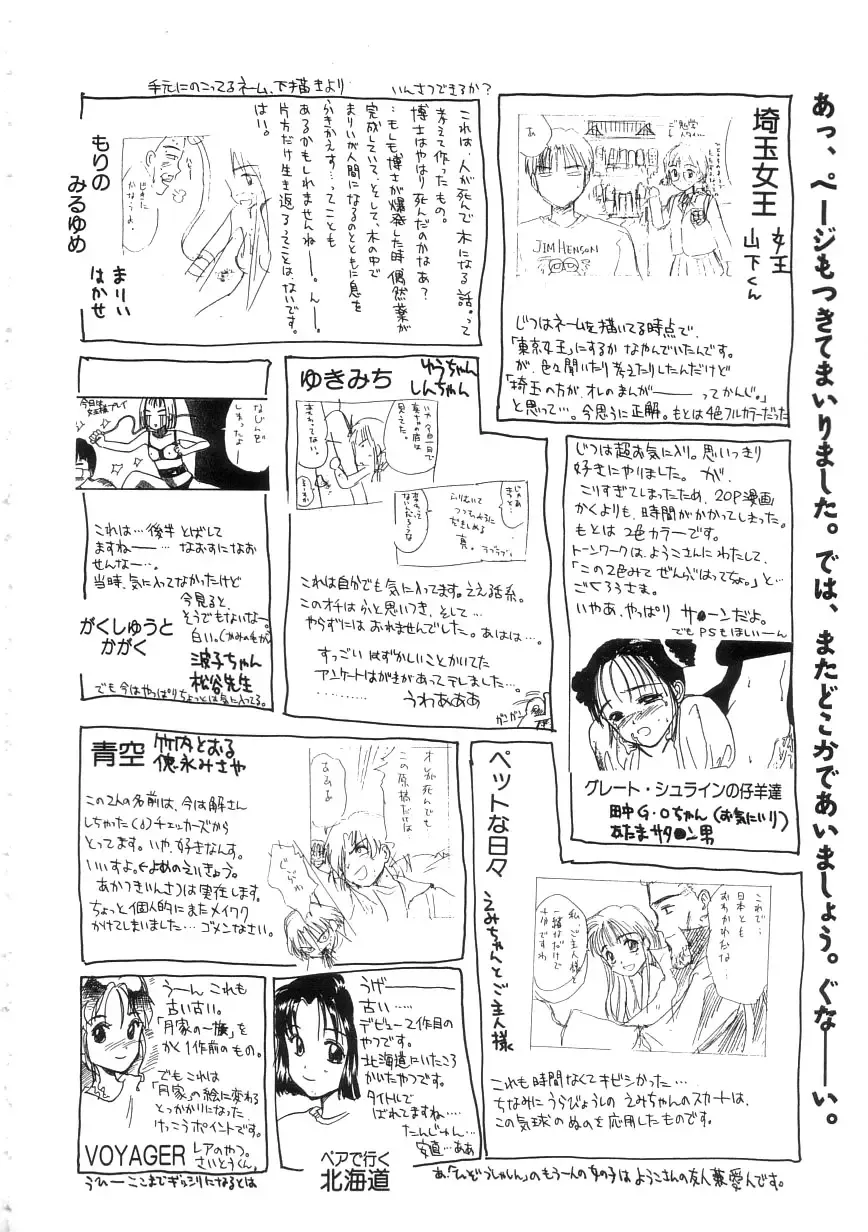 あっ、ページもつきてまいりました。では、またどこかであいましょう。ぐなーーい。
手元にのこってるネーム、下描きより
いんさつできるか？
埼玉女王
女王
山下くん
JIM HENSON
じつはネームを描いてる時点で、
「東京女王」にするか なやんでいたんです。
が、色々聞いたり考えたりしたんだけど
「埼玉の方が、オレのまんが――ってかんじ。」
と思って…。今思うに正解。もとは4色フルカラーだった
これは、人が死んで木になる話。って
考えて作ったもの。
博士はやはり死んだのかなあ？
…もしも博士が爆発した時、偶然薬が
完成していて、そして、木の中で
まりいが人間になるのとともに息を
ふきかえす…ってことも
あるかもしれませんねー。んー。
片方だけ生き返るってことは、ないです。
はい。
もりの
みるゆめ
まりい
はかせ
じつは超お気に入り。思いっきり
好きにやりました。が、
こりすぎてしまったため、20P漫画
かくよりも、時間がかかってしまった。
もとは2色カラーです。
トーンワークは、ようこさんにわたして、
「この2色みて ぜんぶはってちょ。」と…
ごくろうさま。
いやあ、やっぱり サ●ーンだよ。
でもPSもほしいーん
グレート・シュラインの仔羊達
田中G・Oちゃん(お気にいり)
あたまサタ●ン男
ゆきみち
ゆうちゃん
しんちゃん
いや、今日一日で
真ちゃんの底は
見えてた。
変わってない。
じゃあ
きっと…
変わって
ないんだろうな
ふりむいて
つつむように
だきしめる
真。
ラブラブ
これは自分でも気に入ってます。ええ話系。
このオチは ふと思いつき、そして…
やらずには おれませんでした。あはは…。
すっごい はずかしいことかいてた
アンケートはがきがあってテレました…。
…………
うわああああ
今日は
女王様プレイ
なじんで
しまったよ…
これは…後半 とばして
ますねー……なおすになお
せんなー…。
当時、気に入ってなかったけど
今見ると、
そうでもないなー。
白い。(かみの毛が)
がくしゅうと
かがく
波子ちゃん
松谷先生
でも今はやっぱりちょっとは気に入ってる。
青空
竹内とおる
徳永みさや
この2人の名前は、今は解さん
しちゃった(♂)チェッカーズから
とってます。いや、好きなんす。
いいすよ。(←よめのえいきょう。
あかつきいんさつは実在します。
ちょっと個人的にまたメイワク
かけてしまいました…ゴメンなさい。
オレが死んでも
この原稿だけは
ペットな日々
えみちゃんとご主人様
これで…
日本とも
おわかれだな…
私、ご主人様と
一緒なだけで
幸せですわ
これも時間なくてキビシかった…
ちなみに うらびょうしの えみちゃんのスカートは、
この気球の ぬのを 応用したものです。
うーん これも
古い古い。
「月家の一族」を
かく1作前のもの。
でもこれは
「月家」の絵に変わる
とっかかりになった
けっこうポイントです。
VOYAGER
レアのやつ。
さいとうくん。
うげ――
古い……
デビュー2作目の
やつです。
北海道にいたころ
かいたやつです。
タイトルで
ばれてますね…
たんじゅん…
安直…ああ
ペアで行く
北海道
うひー ここまでぎっシリになるとは
あ、「ひぞうっしゃしん」のもう一人の女の子は ようこさんの友人兼愛人です。